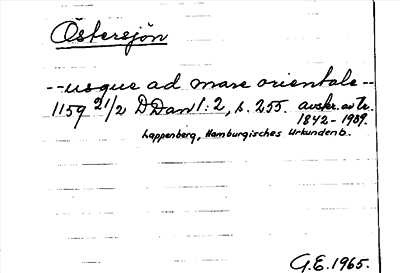 Östersjön
--usque ad mare orientale--
1159 21/2 DDan 1:2, s. 255. avskr. av tr.
1842-1989.
Lappenberg, Hamburgisches Urkundenb.
G.E. 1965.